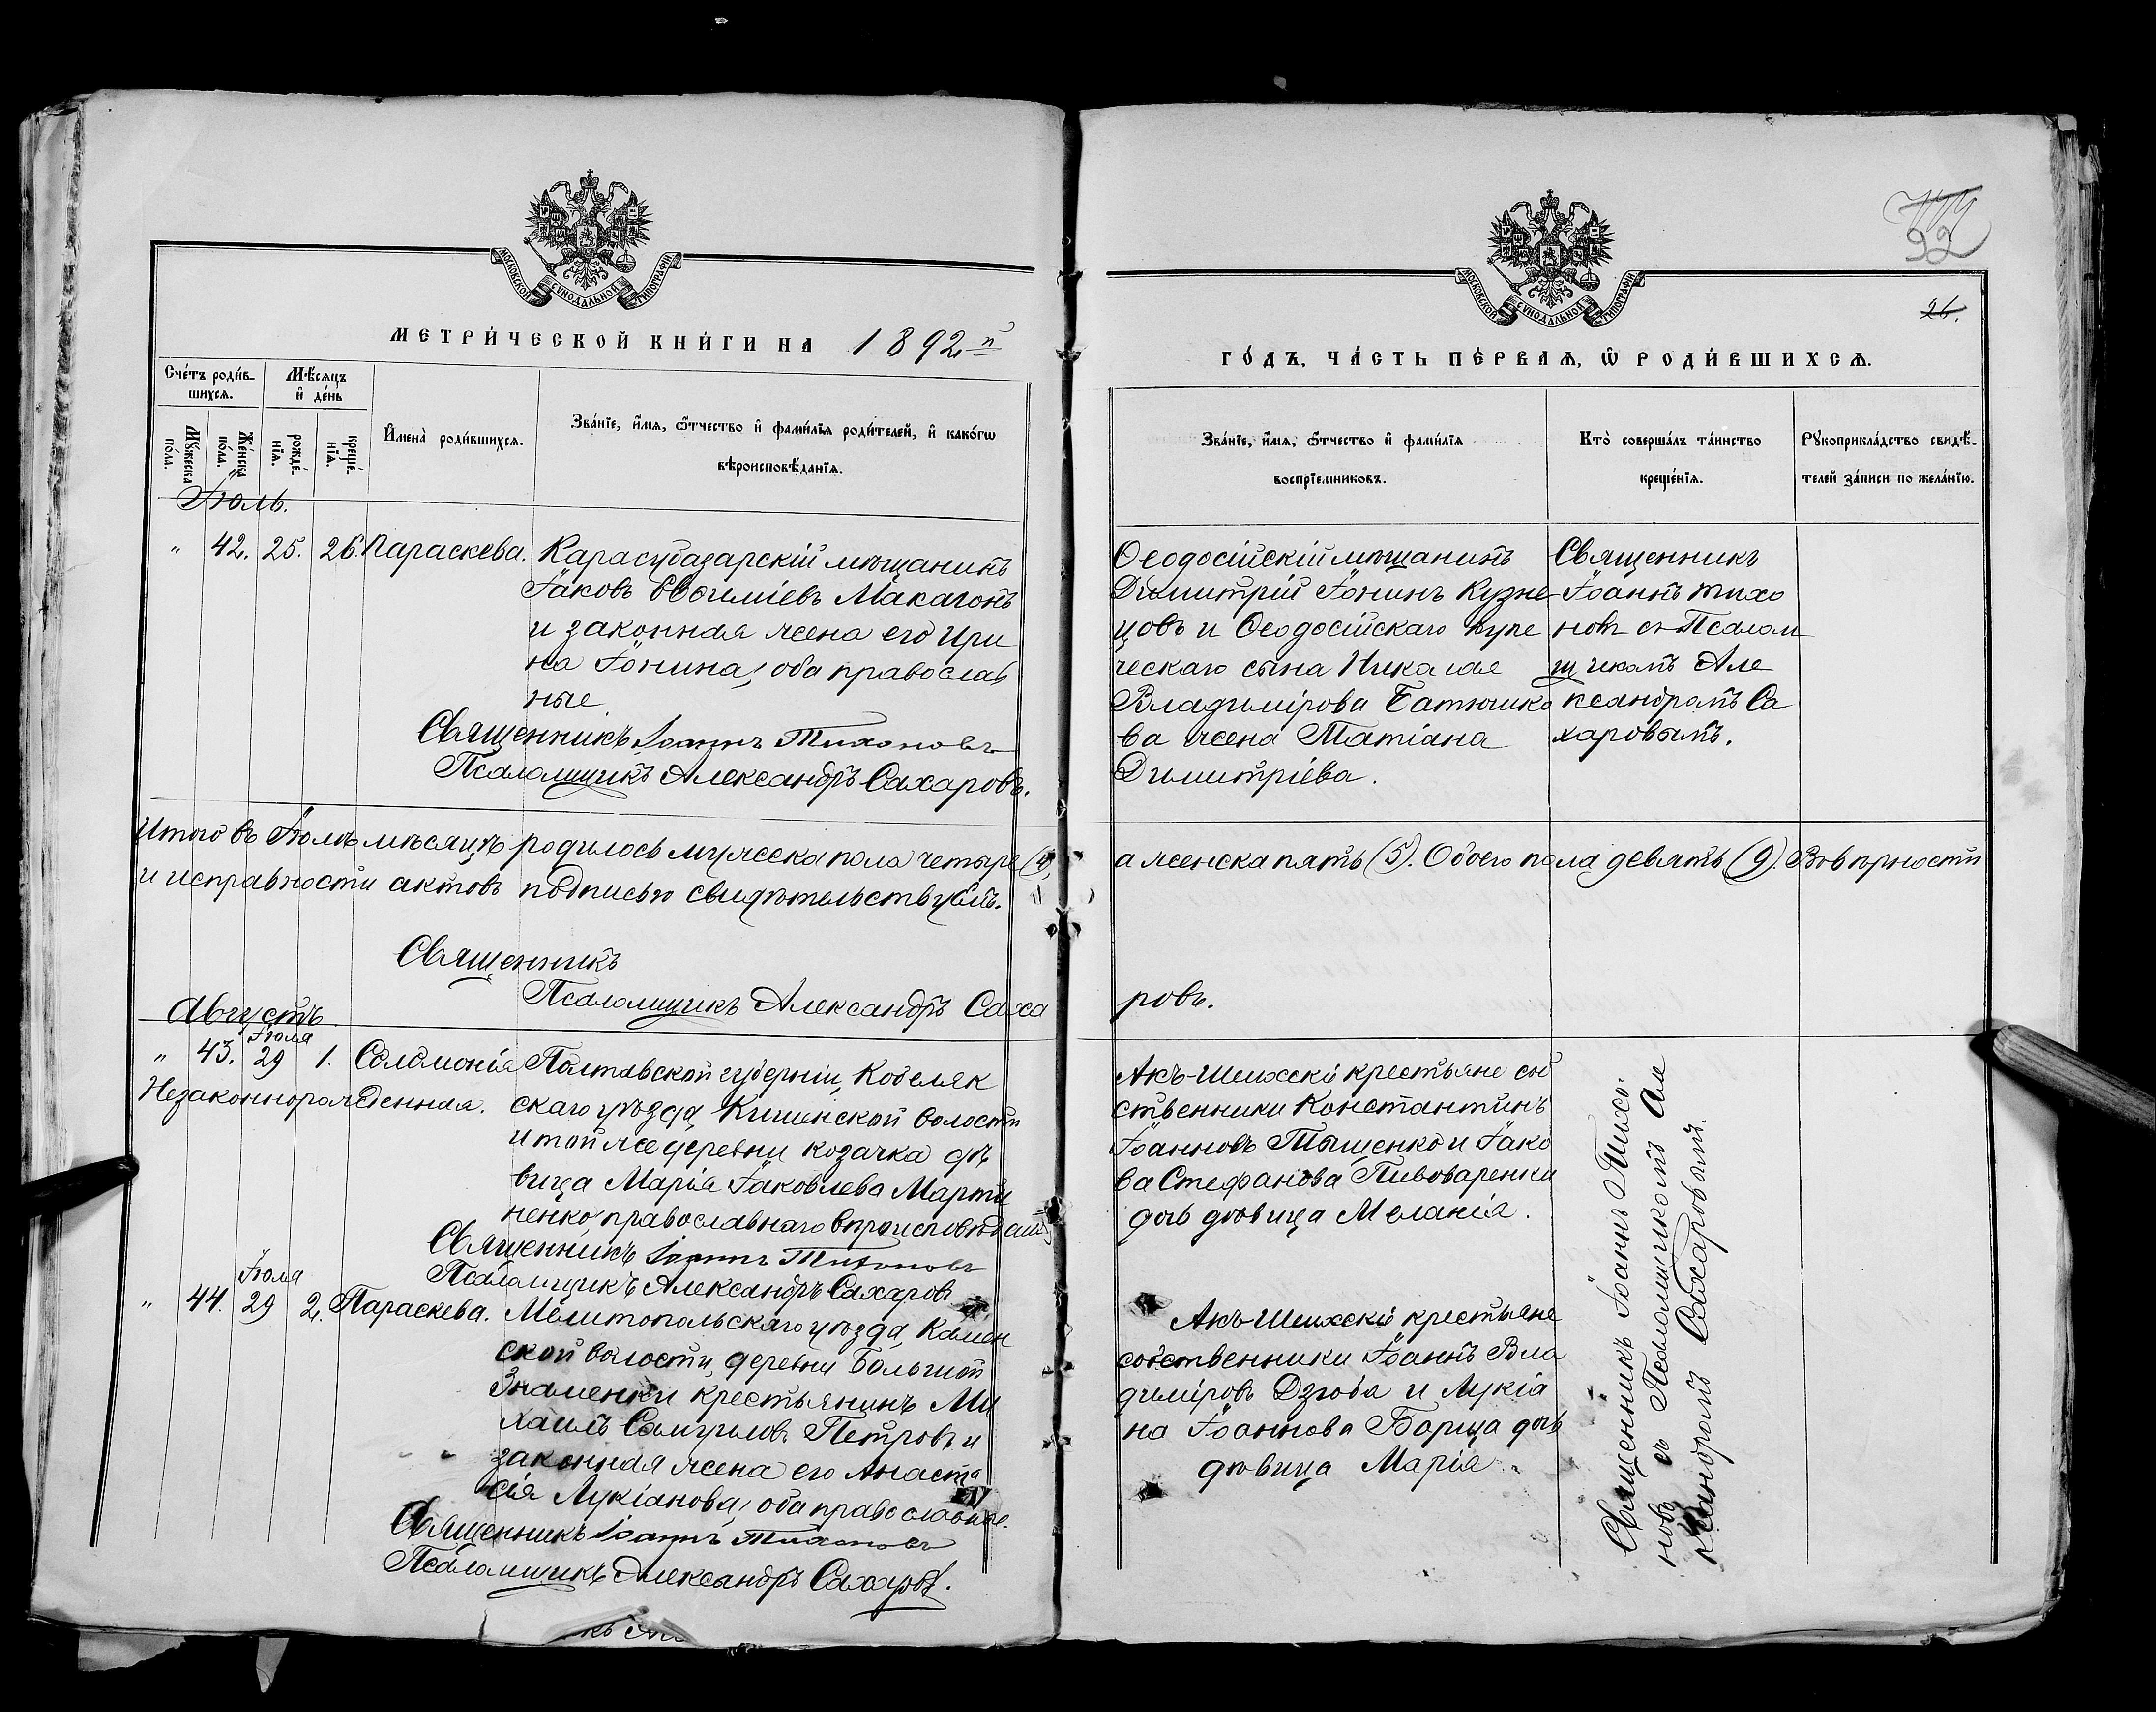 МОСКОВСКОЙ СѴНОДАЛЬНОЙ ТИПОГРАФІИ
МЕТРИ́ЧЕСКОЙ КНИ́ГИ НА 1892й
Сче́тъ роди́в-
шихсѧ.
Мѣ́сяцъ
и҆ де́нь
Мꙋ́жеска
по́ла.
Же́нска
по́ла.
рожде́-
нїѧ.
креще́-
нїѧ.
И҆мена̀ роди́вшихсѧ.
Зва́нїе, и҆́мѧ, ѻ҆́тчество и҆ фами́лїѧ роди́телей, и҆ како́гѡ
вѣроисповѣ́данїѧ.
Іюль.
„ 42. 25. 26. Параскева. Карасубазарскій мѣщанинъ
Іаковъ Евѳиміевъ Макагонъ
и законная жена его Ири
на Іонина, оба православ
ные.
Священникъ Іоаннъ Тихоновъ
Псаломщикъ Александръ Сахаровъ.
Итого въ Іюлѣ мѣсяцѣ родилось мужеска пола четыре (4),
и исправности актовъ подписью свидѣтельствуемъ.
Священникъ
Псаломщикъ Александръ Саха
Августъ.
Іюля
„ 43. 29 1. Соломонія Полтавской губерніи, Кобеляк
Незаконнорожденная. скаго уѣзда Кишенской волости
и той же деревни козачка дѣ
вица Марія Іаковлева Марти
ненко православнаго вѣроисповѣданія
Священникъ Іоаннъ Тихоновъ
Псаломщикъ Александръ Сахаровъ
Іюля
„ 44. 29 2. Параскева. Мелитопольскаго уѣзда, Камен
ской волости, деревни Большой
Знаменки крестьянинъ Ми
хаилъ Самуиловъ Петровъ и
законная жена его Анаста
сія Лукіанова, оба православные.
Священникъ Іоаннъ Тихоновъ
Псаломщикъ Александръ Сахаровъ.
92
26.
МОСКОВСКОЙ СѴНОДАЛЬНОЙ ТИПОГРАФІИ
ГО́ДЪ, ЧА́СТЬ ПЕ́РВАѦ, Ѡ҆ РОДИ́ВШИХСѦ.
Зва́нїе, и҆́мѧ, ѻ҆́тчество и҆ фами́лїѧ
воспрїе́мниковъ.
Кто̀ соверша́лъ та́инство
креще́нїѧ.
Рꙋкоприкла́дство свидѣ́-
телей за́писи по жела́нїю.
Ѳеодосійскій мѣщанинъ
Димитрій Іонинъ Кузне
цовъ и Ѳеодосійскаго купе
ческаго сына Николая
Владимірова Батюшко
ва жена Татіана
Димитріева.
Священникъ
Іоаннъ Тихо
новъ съ Псалом
щикомъ Але
ксандромъ Са
харовымъ.
а женска пять (5). Обоего пола девять (9). Въ вѣрности
ровъ.
Акъ-Шеихскіе крестьяне соб
ственники Константинъ
Іоанновъ Тыщенко и Іако
ва Стефанова Пивоваренки
дочь дѣвица Меланія.
Акъ Шеихскіе крестьяне
собственники Іоаннъ Вла
диміровъ Дзюба и Лукіа
на Іоаннова Борща дочь
дѣвица Марія.
Священникъ Іоаннъ Тихо-
новъ съ Псаломщикомъ Але
ксандромъ Сахаровымъ.